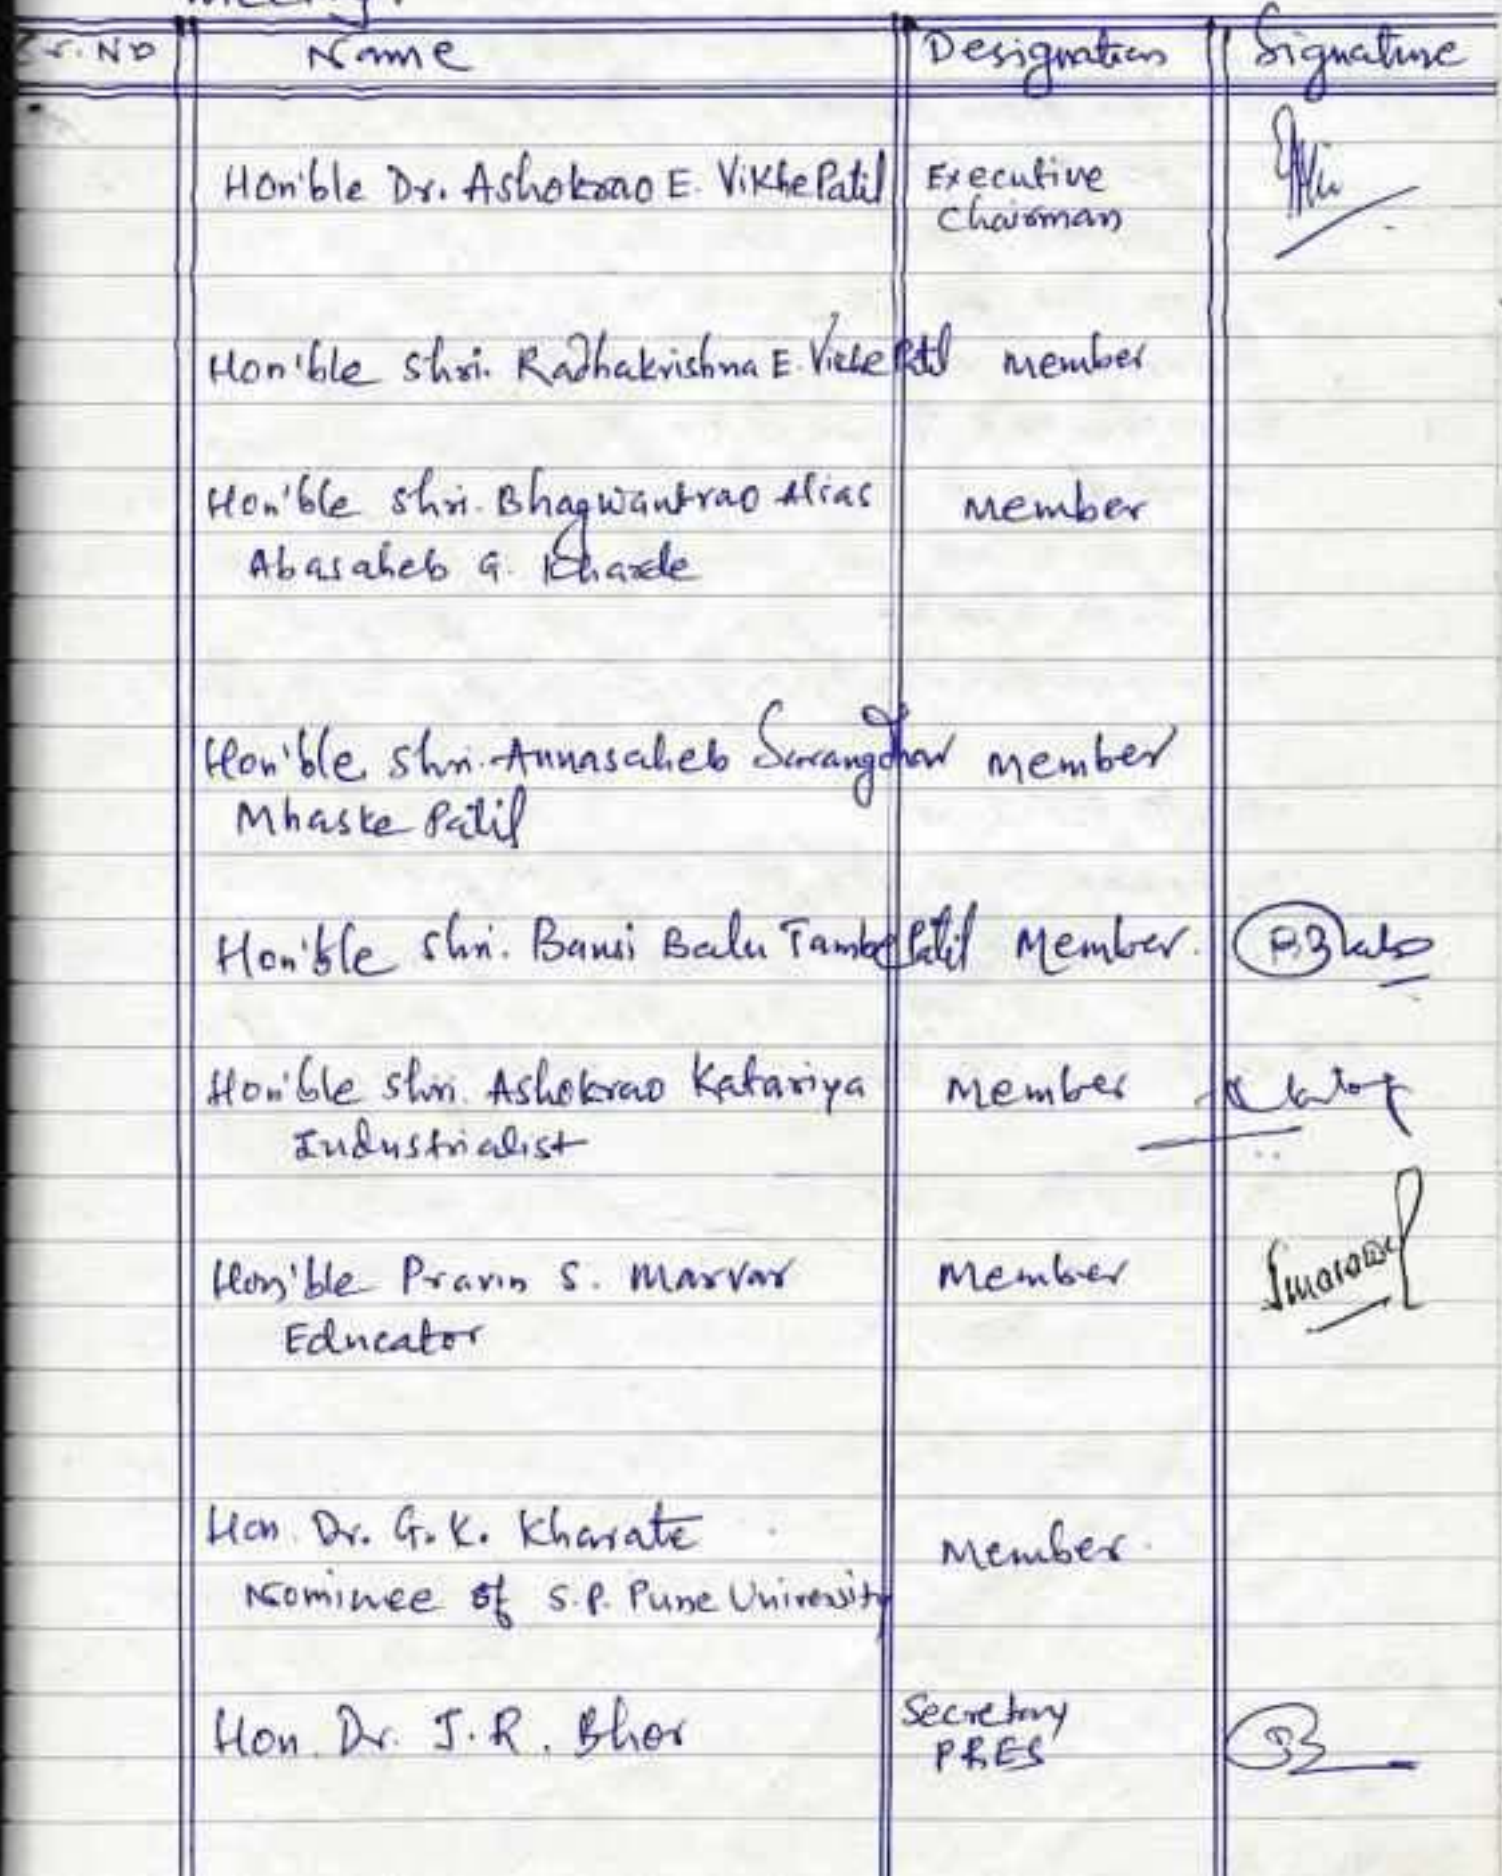 meeting.
Sr. No Name Designation Signature
Hon'ble Dr. Ashokrao E. Vikhe Patil Executive
Chairman
Hon'ble Shri. Radhakrishna E. Vikhe Patil Member
Hon'ble Shri. Bhagwantrao Alias Member
Abasaheb G. Kharde
Hon'ble Shri. Annasaheb Sarangdhar Member
Mhaske Patil
Hon'ble Shri. Bansi Balu Tambe Patil Member.
Hon'ble Shri. Ashokrao Katariya Member
Industrialist
Hon'ble Pravin S. Marvar Member
Educator
Hon. Dr. G. K. Kharate Member.
Nominee of S.P. Pune University
Hon. Dr. J. R. Bhor Secretary
PRES